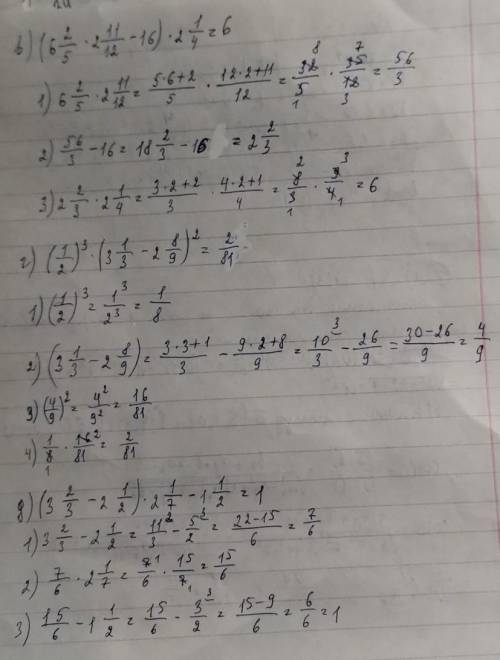 в) (6 2/5 · 2 11/12 - 16) · 2 1/4 = 6
1) 6 2/5 · 2 11/12 = 5·6+2/5 · 12·2+11/12 = 32 8/5 1 · 35 7/12 3 = 56/3
2) 56/3 - 16 = 18 2/3 - 16 = 2 2/3
3) 2 2/3 · 2 1/4 = 3·2+2/3 · 4·2+1/4 = 8 2/3 1 · 9 3/4 1 = 6
г) (1/2)³ · (3 1/3 - 2 8/9)² = 2/81
1) (1/2)³ = 1³/2³ = 1/8
2) (3 1/3 - 2 8/9) = 3·3+1/3 - 9·2+8/9 = 10 3/3 - 26/9 = 30-26/9 = 4/9
3) (4/9)² = 4²/9² = 16/81
4) 1/8 1 · 16 2/81 = 2/81
д) (3 2/3 - 2 1/2) · 2 1/7 - 1 1/2 = 1
1) 3 2/3 - 2 1/2 = 11 2/3 - 5 3/2 = 22-15/6 = 7/6
2) 7/6 · 2 1/7 = 7 1/6 · 15/7 1 = 15/6
3) 15/6 - 1 1/2 = 15/6 - 3 3/2 = 15-9/6 = 6/6 = 1